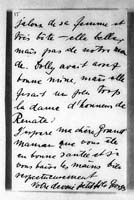 jalouse de sa femme et
très bête - elle belle
mais pas de notre mon
de. Dolly avait assez
bonne mine, mais elle
faisait un peu trop
la dame d'honneur de
Renate!
J'espère ma chère Grand
Maman que vous êtes
en bonne santé et si
vous baise les mains bien
respectueusement
Votre dévoué petit fils Georges